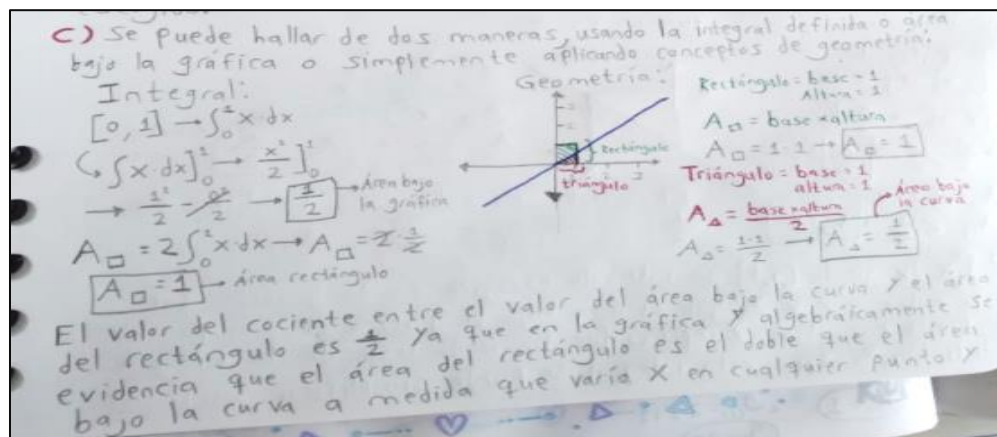 C) Se puede hallar de dos maneras, usando la integral definida o área
bajo la gráfica o simplemente aplicando conceptos de geometría:
Integral:
[0, 1] → ∫₀¹ x·dx
↳ ∫x·dx]₀¹ → x²/2]₀¹
→ 1²/2 - 0²/2 → 1/2 → Área bajo
la gráfica
A□ = 2∫₀¹ x·dx → A□ = 2·1/2
A□ = 1 → área rectángulo
Geometría:
Rectángulo
triángulo
Rectángulo = base = 1
Altura = 1
A□ = base × altura
A□ = 1·1 → A□ = 1
Triángulo = base = 1
altura = 1
Área bajo
la curva
A△ = base × altura / 2
A△ = 1·1/2 → A△ = 1/2
El valor del cociente entre el valor del área bajo la curva y el área
del rectángulo es 1/2 ya que en la gráfica y algebráicamente se
evidencia que el área del rectángulo es el doble que el área
bajo la curva a medida que varía X en cualquier punto y